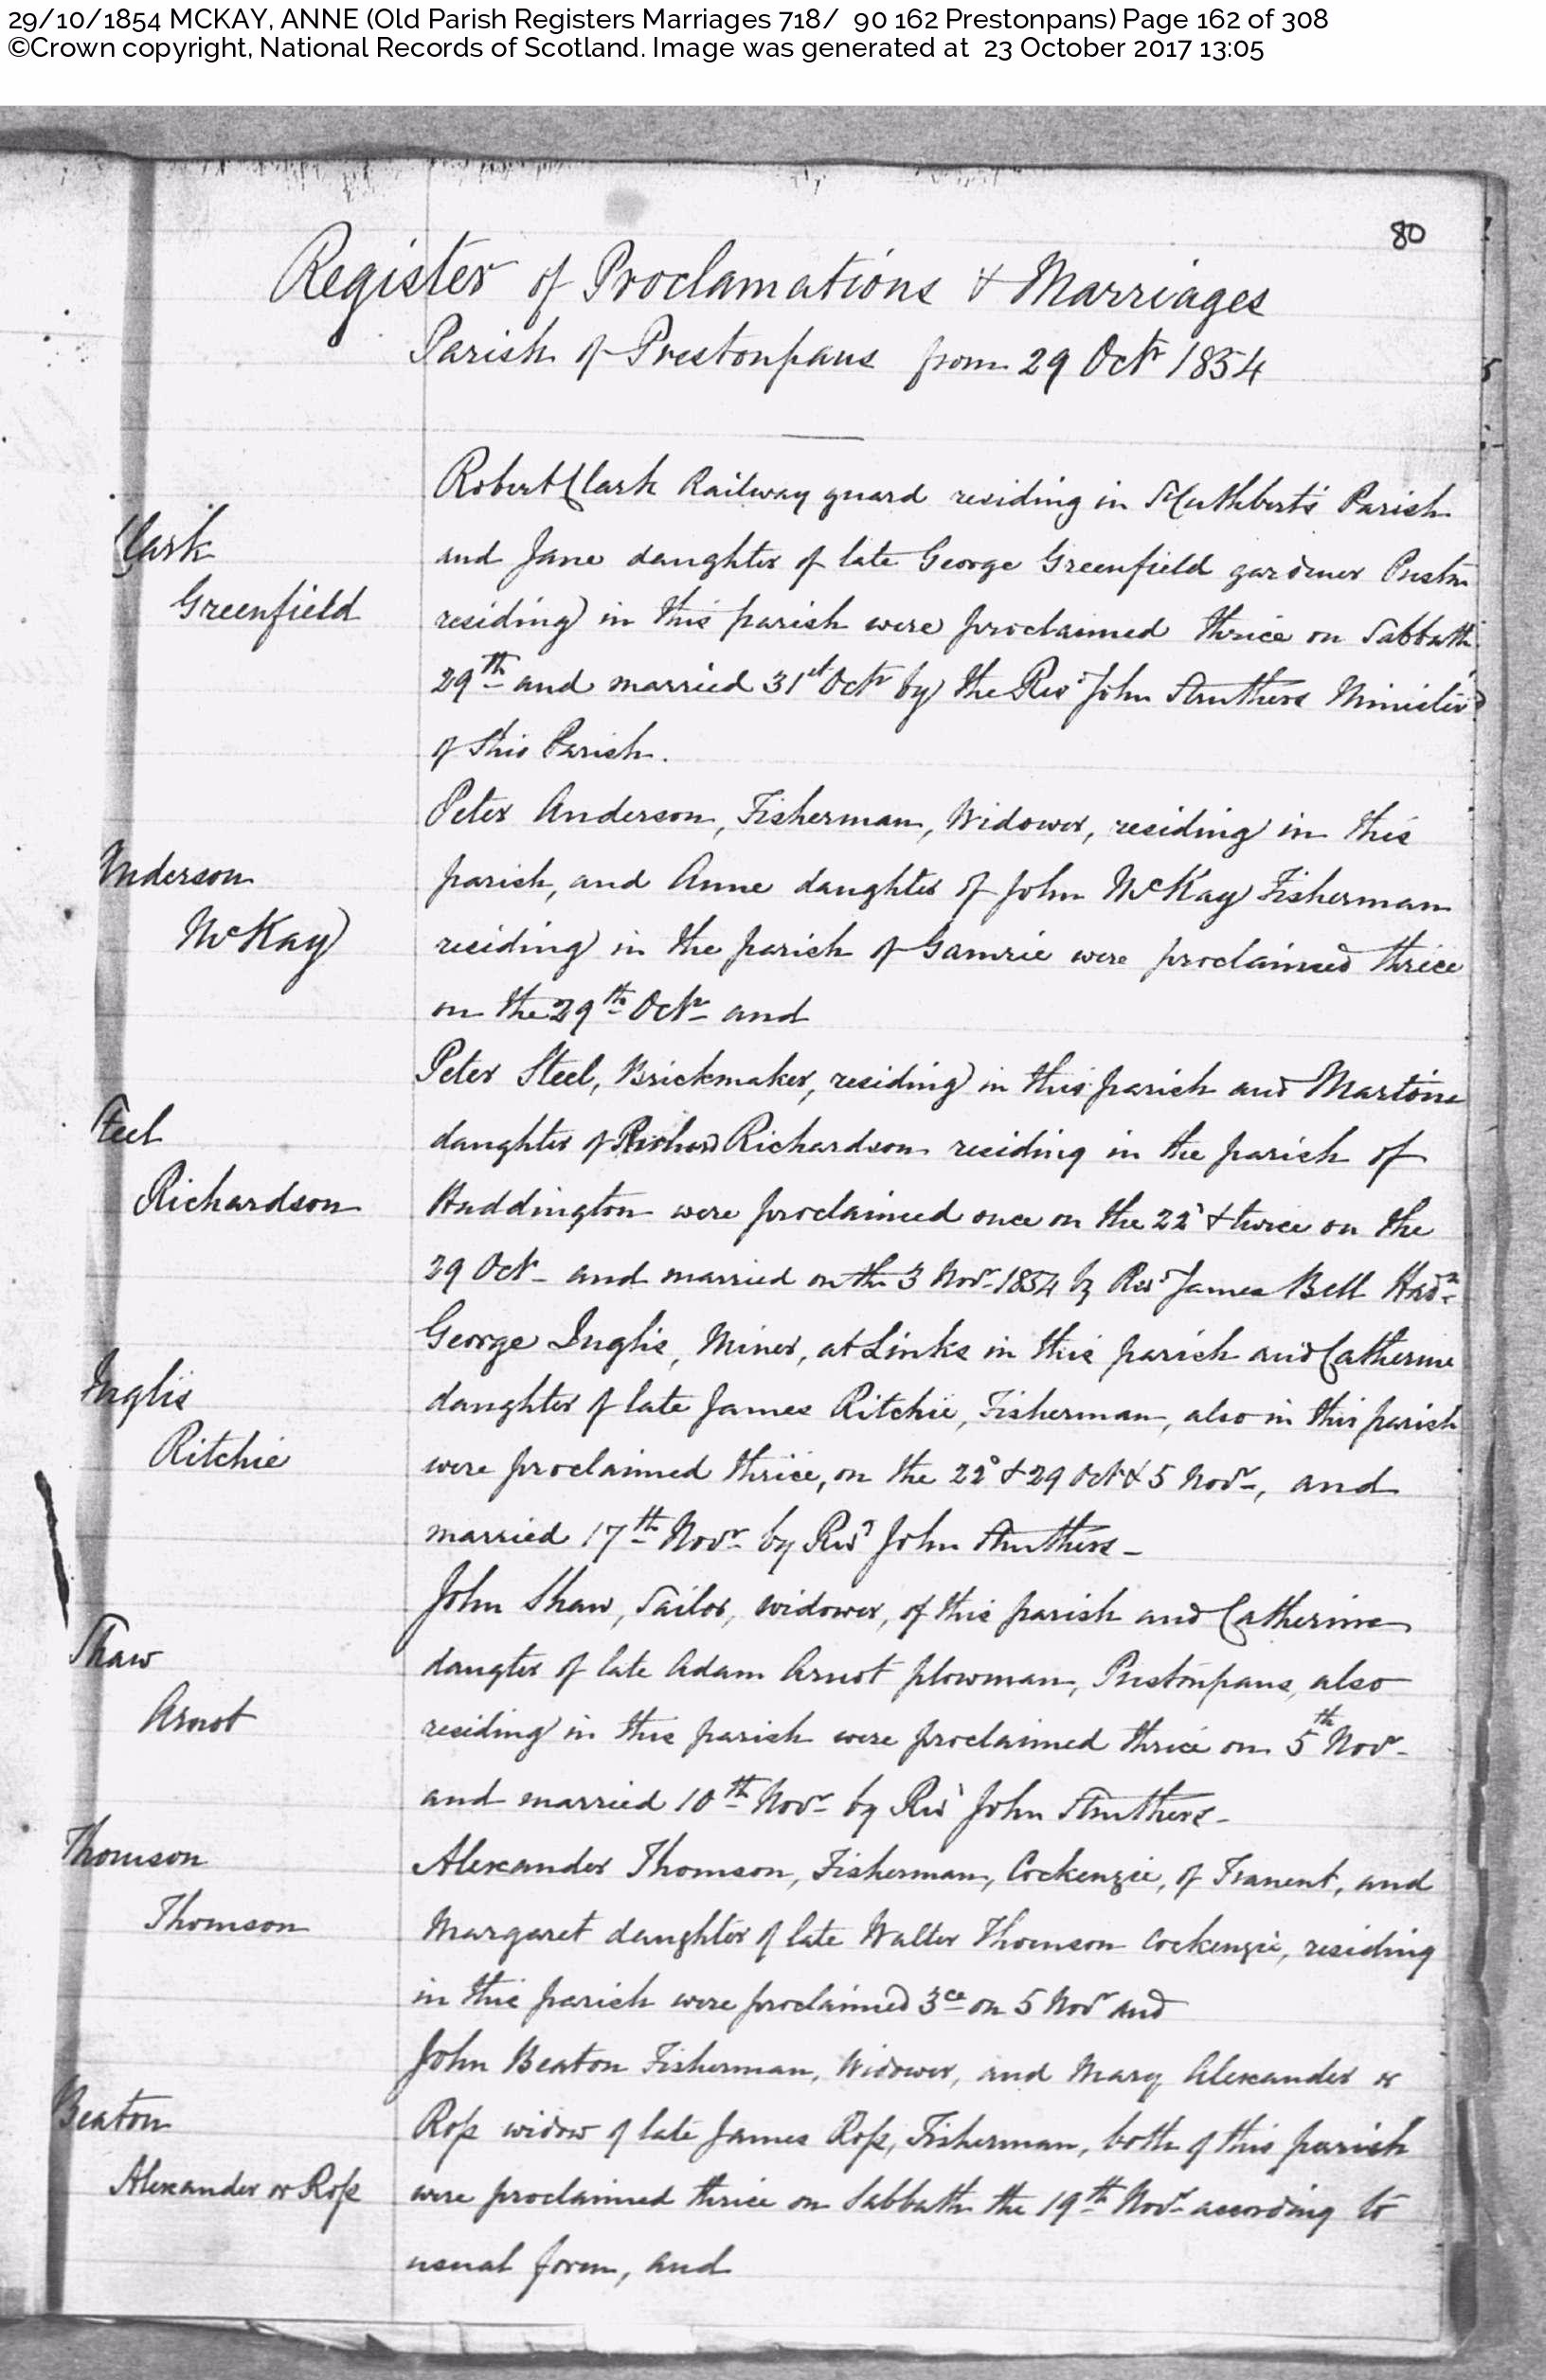 29/10/1854 MCKAY, ANNE (Old Parish Registers Marriages 718/ 90 162 Prestonpans) Page 162 of 308
©Crown copyright, National Records of Scotland. Image was generated at 23 October 2017 13:05
80
Register of Proclamations & Marriages
Parish of Prestonpans from 29 Octr 1854
Robert Clark Railway guard residing in St Cuthbert's Parish
Clark
and Jane daughter of late George Greenfield gardiner Preston
Greenfield
residing in this parish were proclaimed thrice on Sabbath
29th and married 31st Octr by the Revd John Struthers Minister
of this Parish.
Peter Anderson, Fisherman, Widower, residing in this
Anderson
parish, and Anne daughter of John McKay Fisherman
McKay
residing in the parish of Gamrie were proclaimed thrice
on the 29th Octr and
Peter Steel, Brickmaker, residing in this parish and Martine
Steel
daughter of Richard Richardson residing in the parish of
Richardson
Haddington were proclaimed once on the 22d & twice on the
29 Octr and married on the 3 Novr 1854 by Revd James Bell Hadn
George Inglis, Miner, at Links in this parish and Catherine
Inglis
daughter of late James Ritchie, Fisherman, also in this parish
Ritchie
were proclaimed thrice, on the 22d & 29 Octr & 5 Novr, and
married 17th Novr by Revd John Struthers
John Shaw, Tailor, widower, of this parish and Catherine
Shaw
daugter of late Adam Arnot plowman, Prestonpans, also
Arnot
residing in this parish were proclaimed thrice on 5th Novr
and married 10th Novr by Revd John Struthers
Thomson
Alexander Thomson, Fisherman, Cockenzie, of Tranent, and
Thomson
Margaret daughter of late Walter Thomson Cockenzie, residing
in this parish were proclaimed 3ce on 5 Novr and
John Beaton Fisherman, Widower, and Mary Alexander or
Beaton
Ross widow of late James Ross, Fisherman, both of this parish
Alexander or Ross
were proclaimed thrice on Sabbath the 19th Novr according to
usual form, and